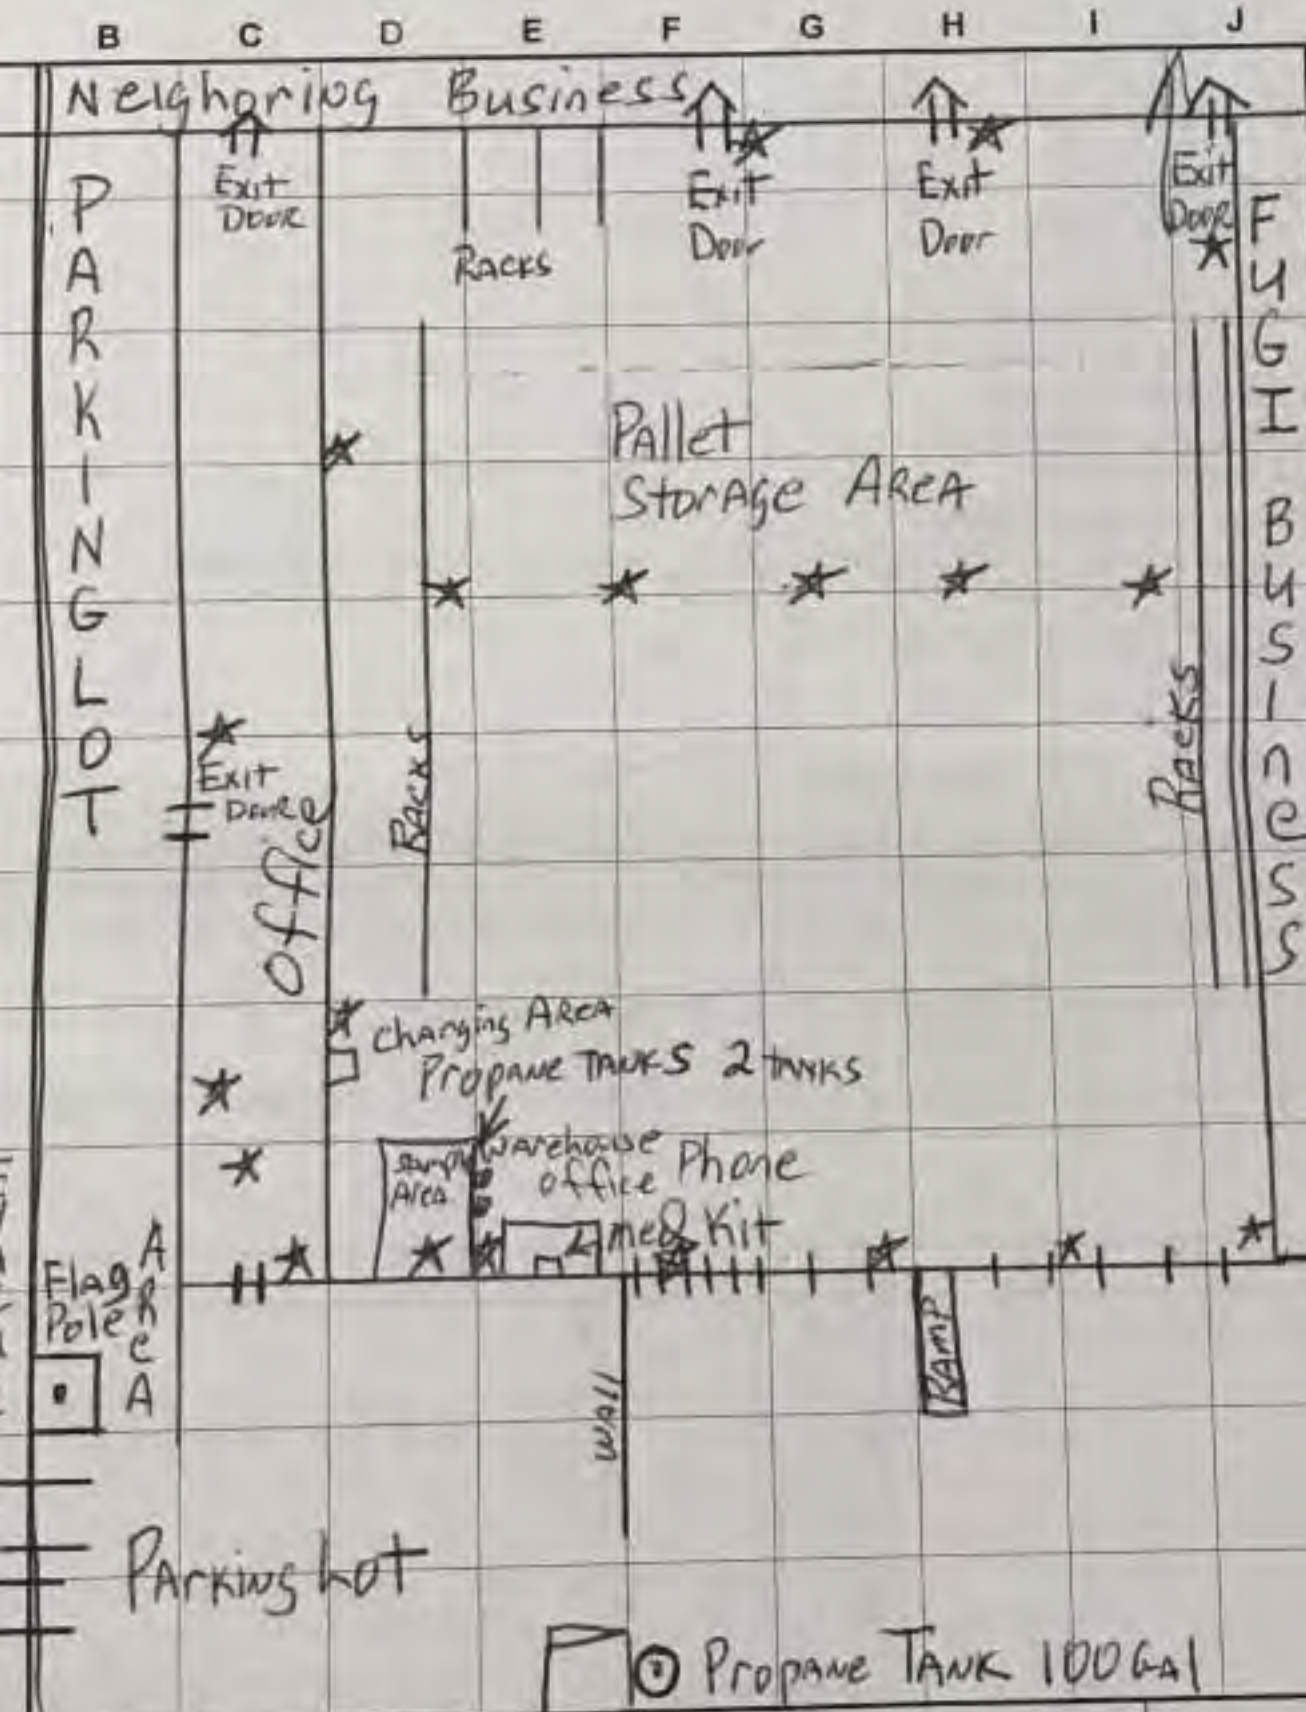 B C D E F G H I J
Neighoring Business
PARKING LOT
Exit
DOOR
Racks
Exit
Door
Exit
Door
Exit
DOOR
FUGI BUSINESS
Pallet
Storage Area
Racks
Racks
Exit
Door
Office
Charging Area
Propane Tanks 2 tanks
Area
Warehouse
office
Phone
med Kit
Flag
Pole
AReA
Wall
RAMP
Parking Lot
Propane Tank 100 Gal